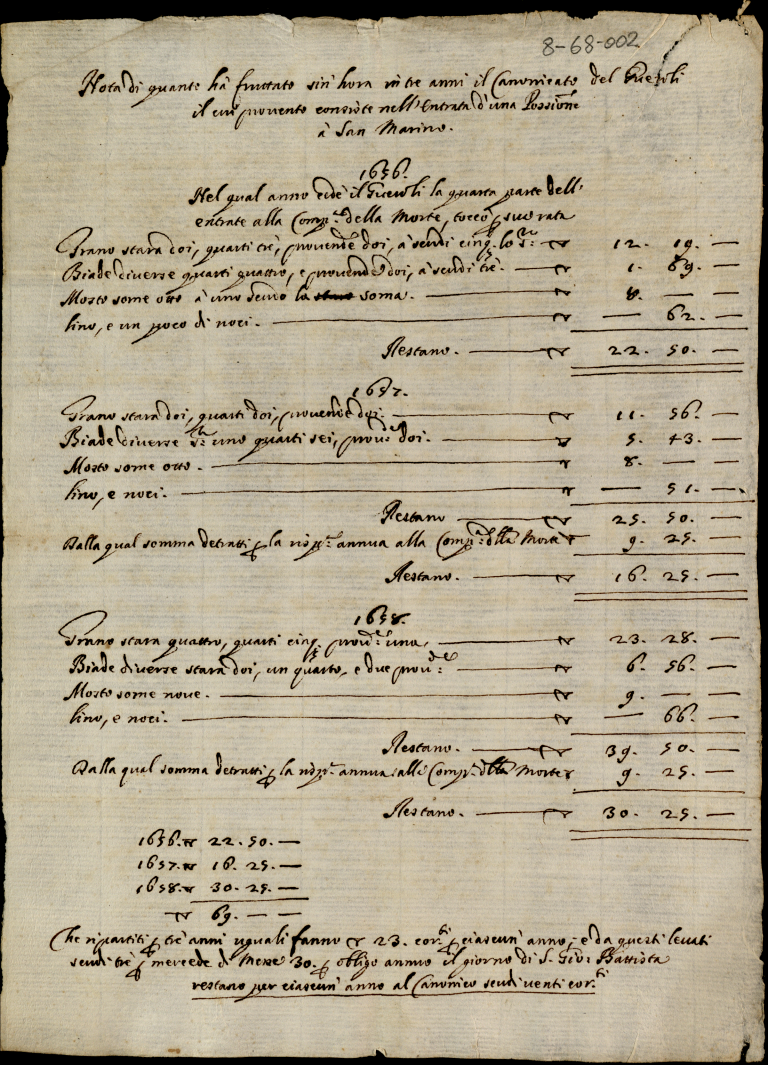 8-68-002
Nota di quanto hà fruttato sin' hora in tre anni il Canonicato del Gueroli
il cui provento consiste nell'Entrata d'una Possione
à San Marino.
1656.
Nel qual anno cedè il Gueroli la quarta parte dell'
entrate alla Comp.ª della Morte, toccò p sua rata
Grano stara doi, quarti trè, provende doi, à scudi cinq. lo s.ro ▽ 12. 19. —
Biade diverse quarti quattro, e provende doi, à scudi trè. ▽ 1. 69. —
Mosto some otto à uno scudo la soma. ▽ 8. — —
lino, e un poco di noci. — 62. —
Restano. ▽ 22. 50. —
1657.
Grano stara doi, quarti doi, provende doi. ▽ 11. 56. —
Biade diverse s.ro uno quarti sei, prov.e doi. ▽ 5. 43. —
Mosto some otto. ▽ 8. — —
lino, e noci. ▽ — 51. —
Restano ▽ 25. 50. —
Dalla qual somma detratti p la annua alla Comp.ª della Morte ▽ 9. 25. —
Restano. ▽ 16. 25. —
1658.
Grano stara quattro, quarti cinq. prov.e una. ▽ 23. 28. —
Biade diverse stara doi, un quarto, e due prov.de ▽ 6. 56. —
Mosto some nove. ▽ 9. — —
lino, e noci. ▽ — 66. —
Restano. ▽ 39. 50. —
Dalla qual somma detratti p la annua alla Comp.ª della Morte ▽ 9. 25. —
Restano. ▽ 30. 25. —
1656. ▽ 22. 50. —
1657. ▽ 16. 25. —
1658. ▽ 30. 25. —
▽ 69. — —
Che ripartiti p trè anni uguali fanno ▽ 23. cor.ti p ciascun' anno; e da questi levati
scudi trè p mercede di Messe 30. p obligo annuo il giorno di S. Gio: Battista
restano per ciascun' anno al Canonico scudi venti cor.ti